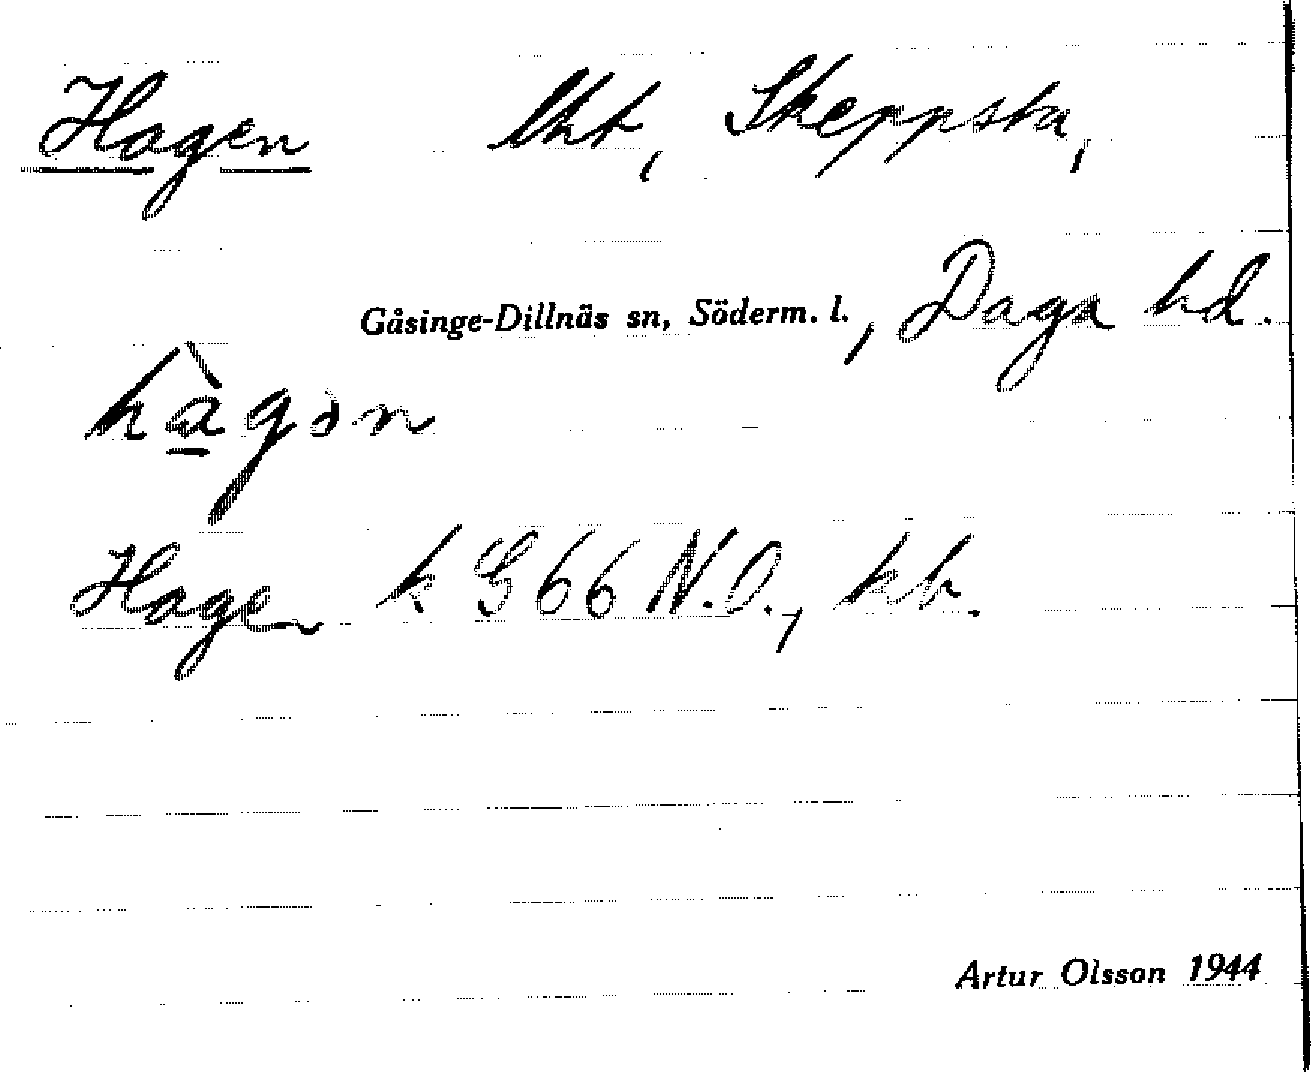 Hagen lht, Skeppsta,
Gåsinge-Dillnäs sn, Söderm. l., Daga hd.
hàgən
Hagen k G 66 N.O., hb.
Artur Olsson 1944